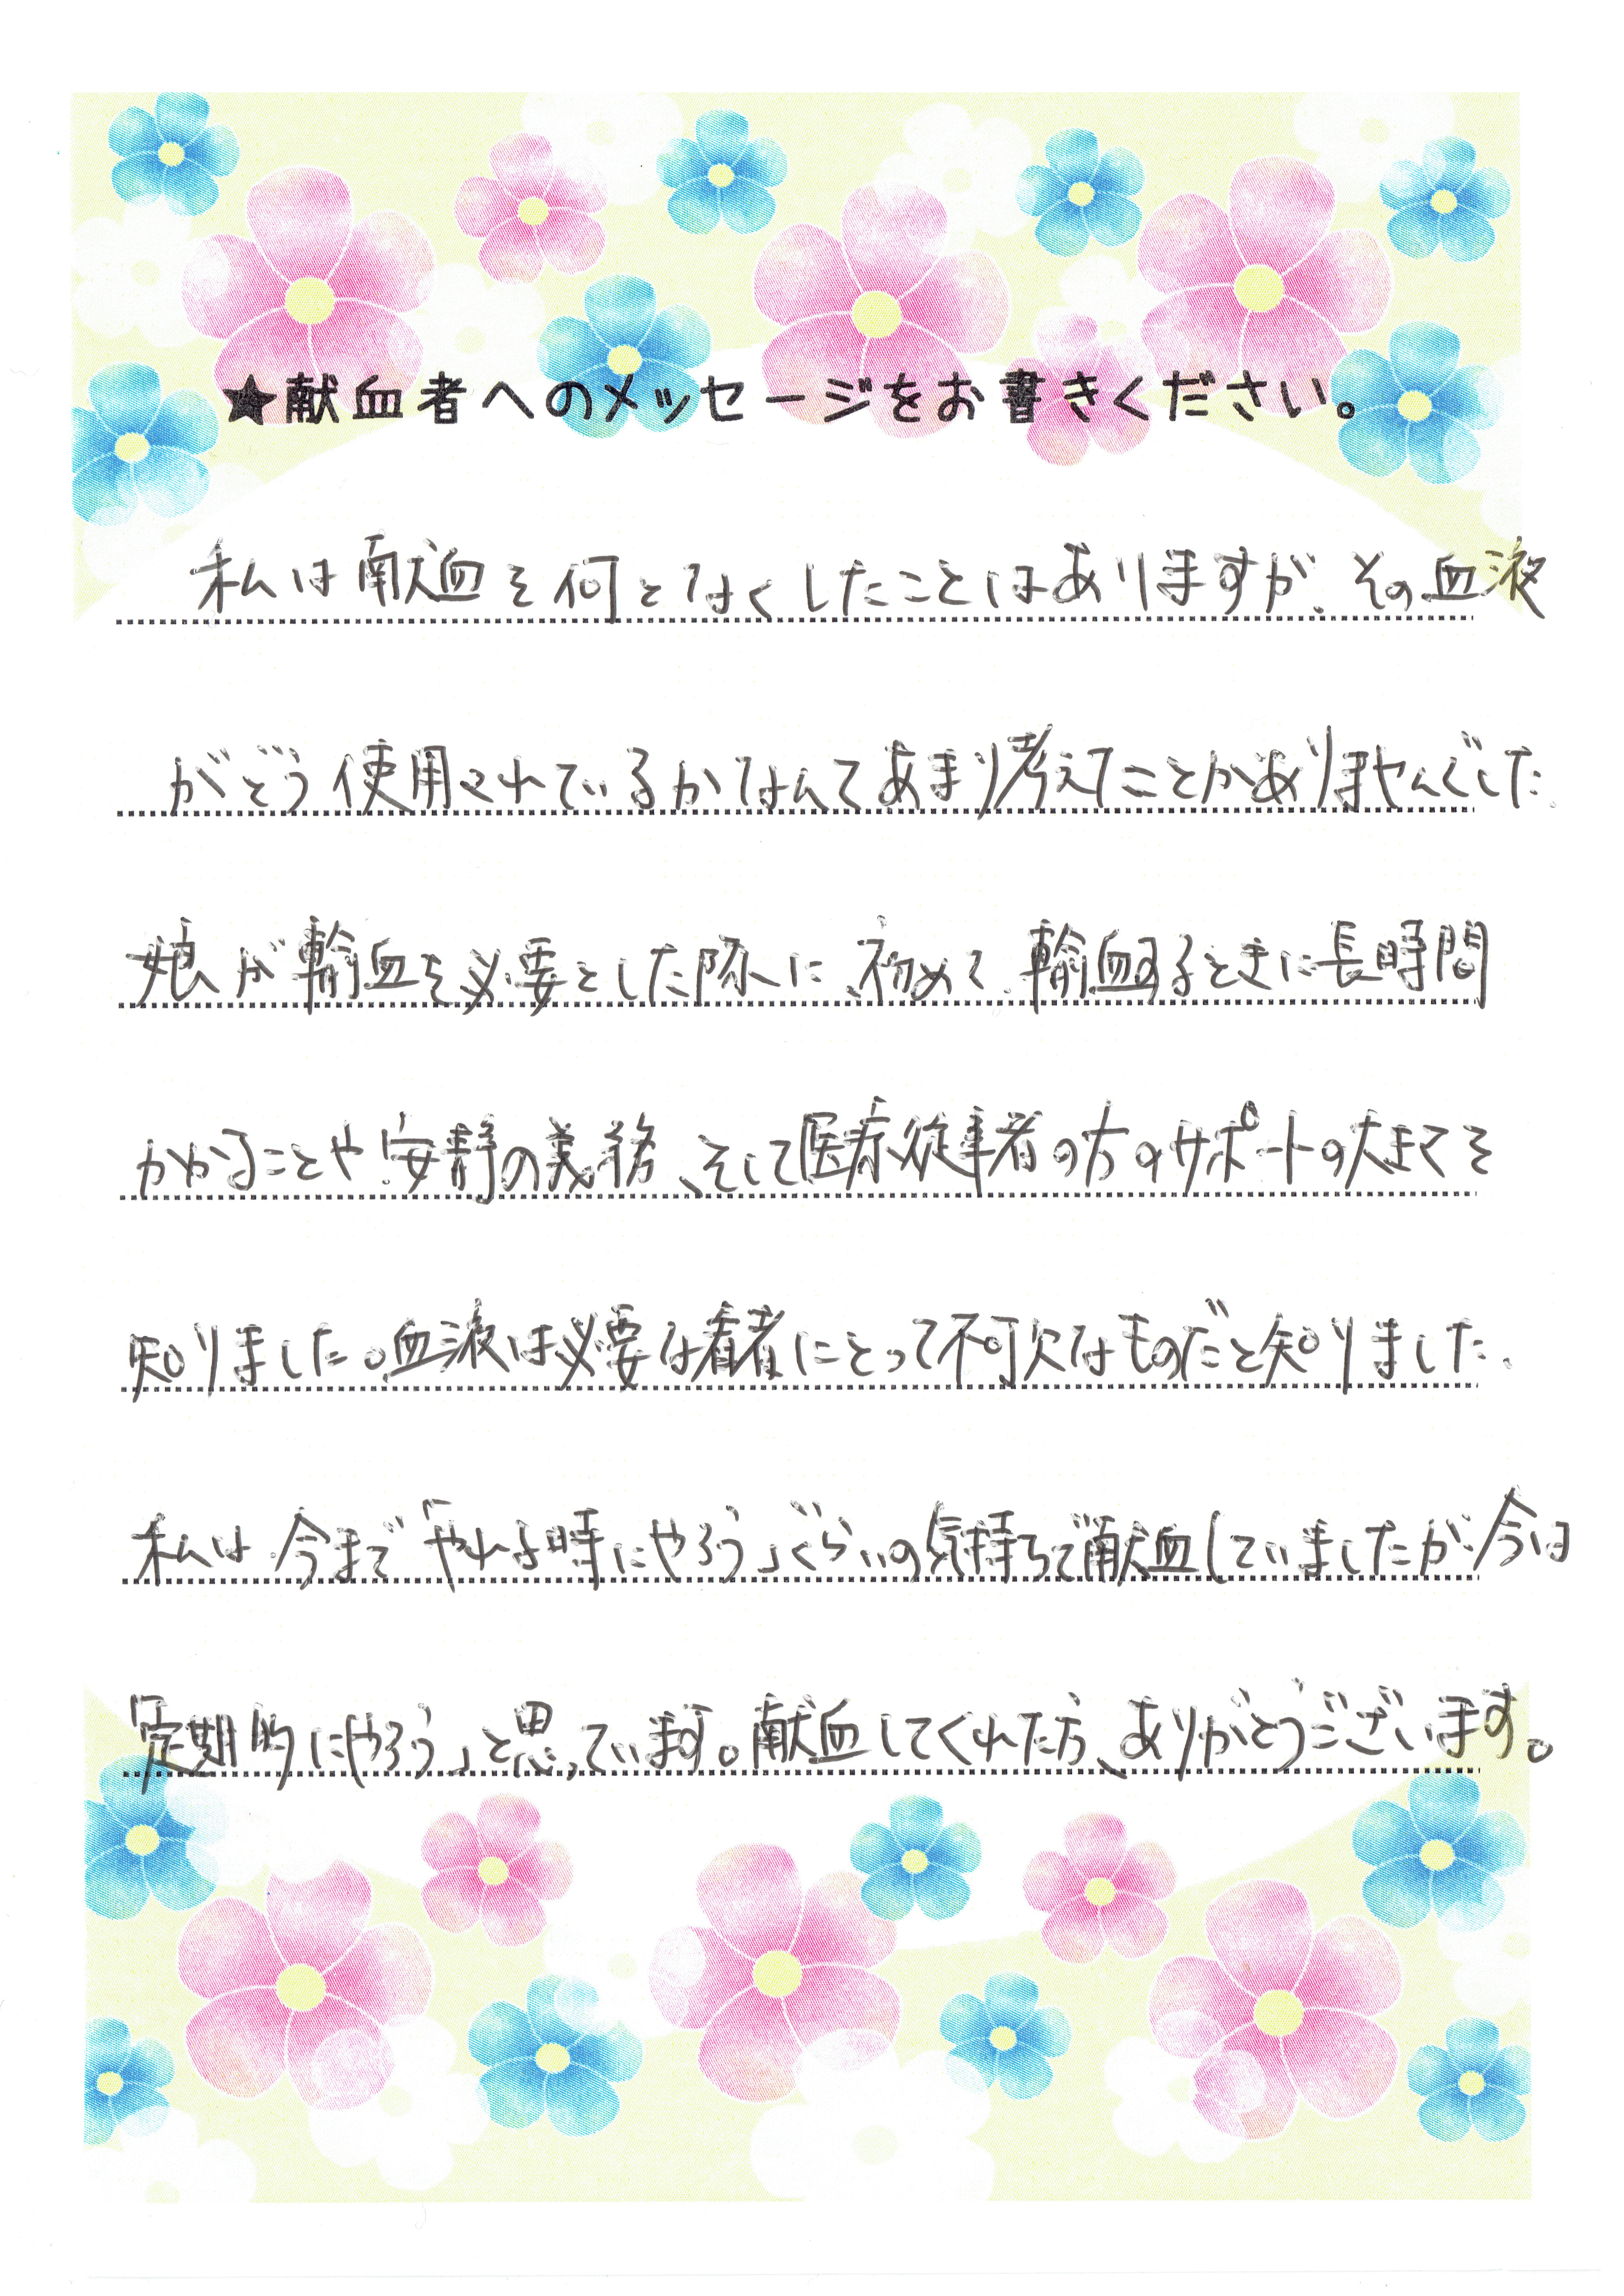 ★献血者へのメッセージをお書きください。
私は献血を何となくしたことはありますが、その血液
がどう使用されているかなんてあまり考えたことがありませんでした。
娘が輸血を必要とした際に、初めて、輸血するときに長時間
かかることや安静の義務、そして医療従事者の方のサポートの大きさを
知りました。血液は必要な患者にとって不可欠なものだと知りました。
私は今まで「やれる時にやろう」ぐらいの気持ちで献血していましたが、今は
「定期的にやろう」と思っています。献血してくれた方、ありがとうございます。